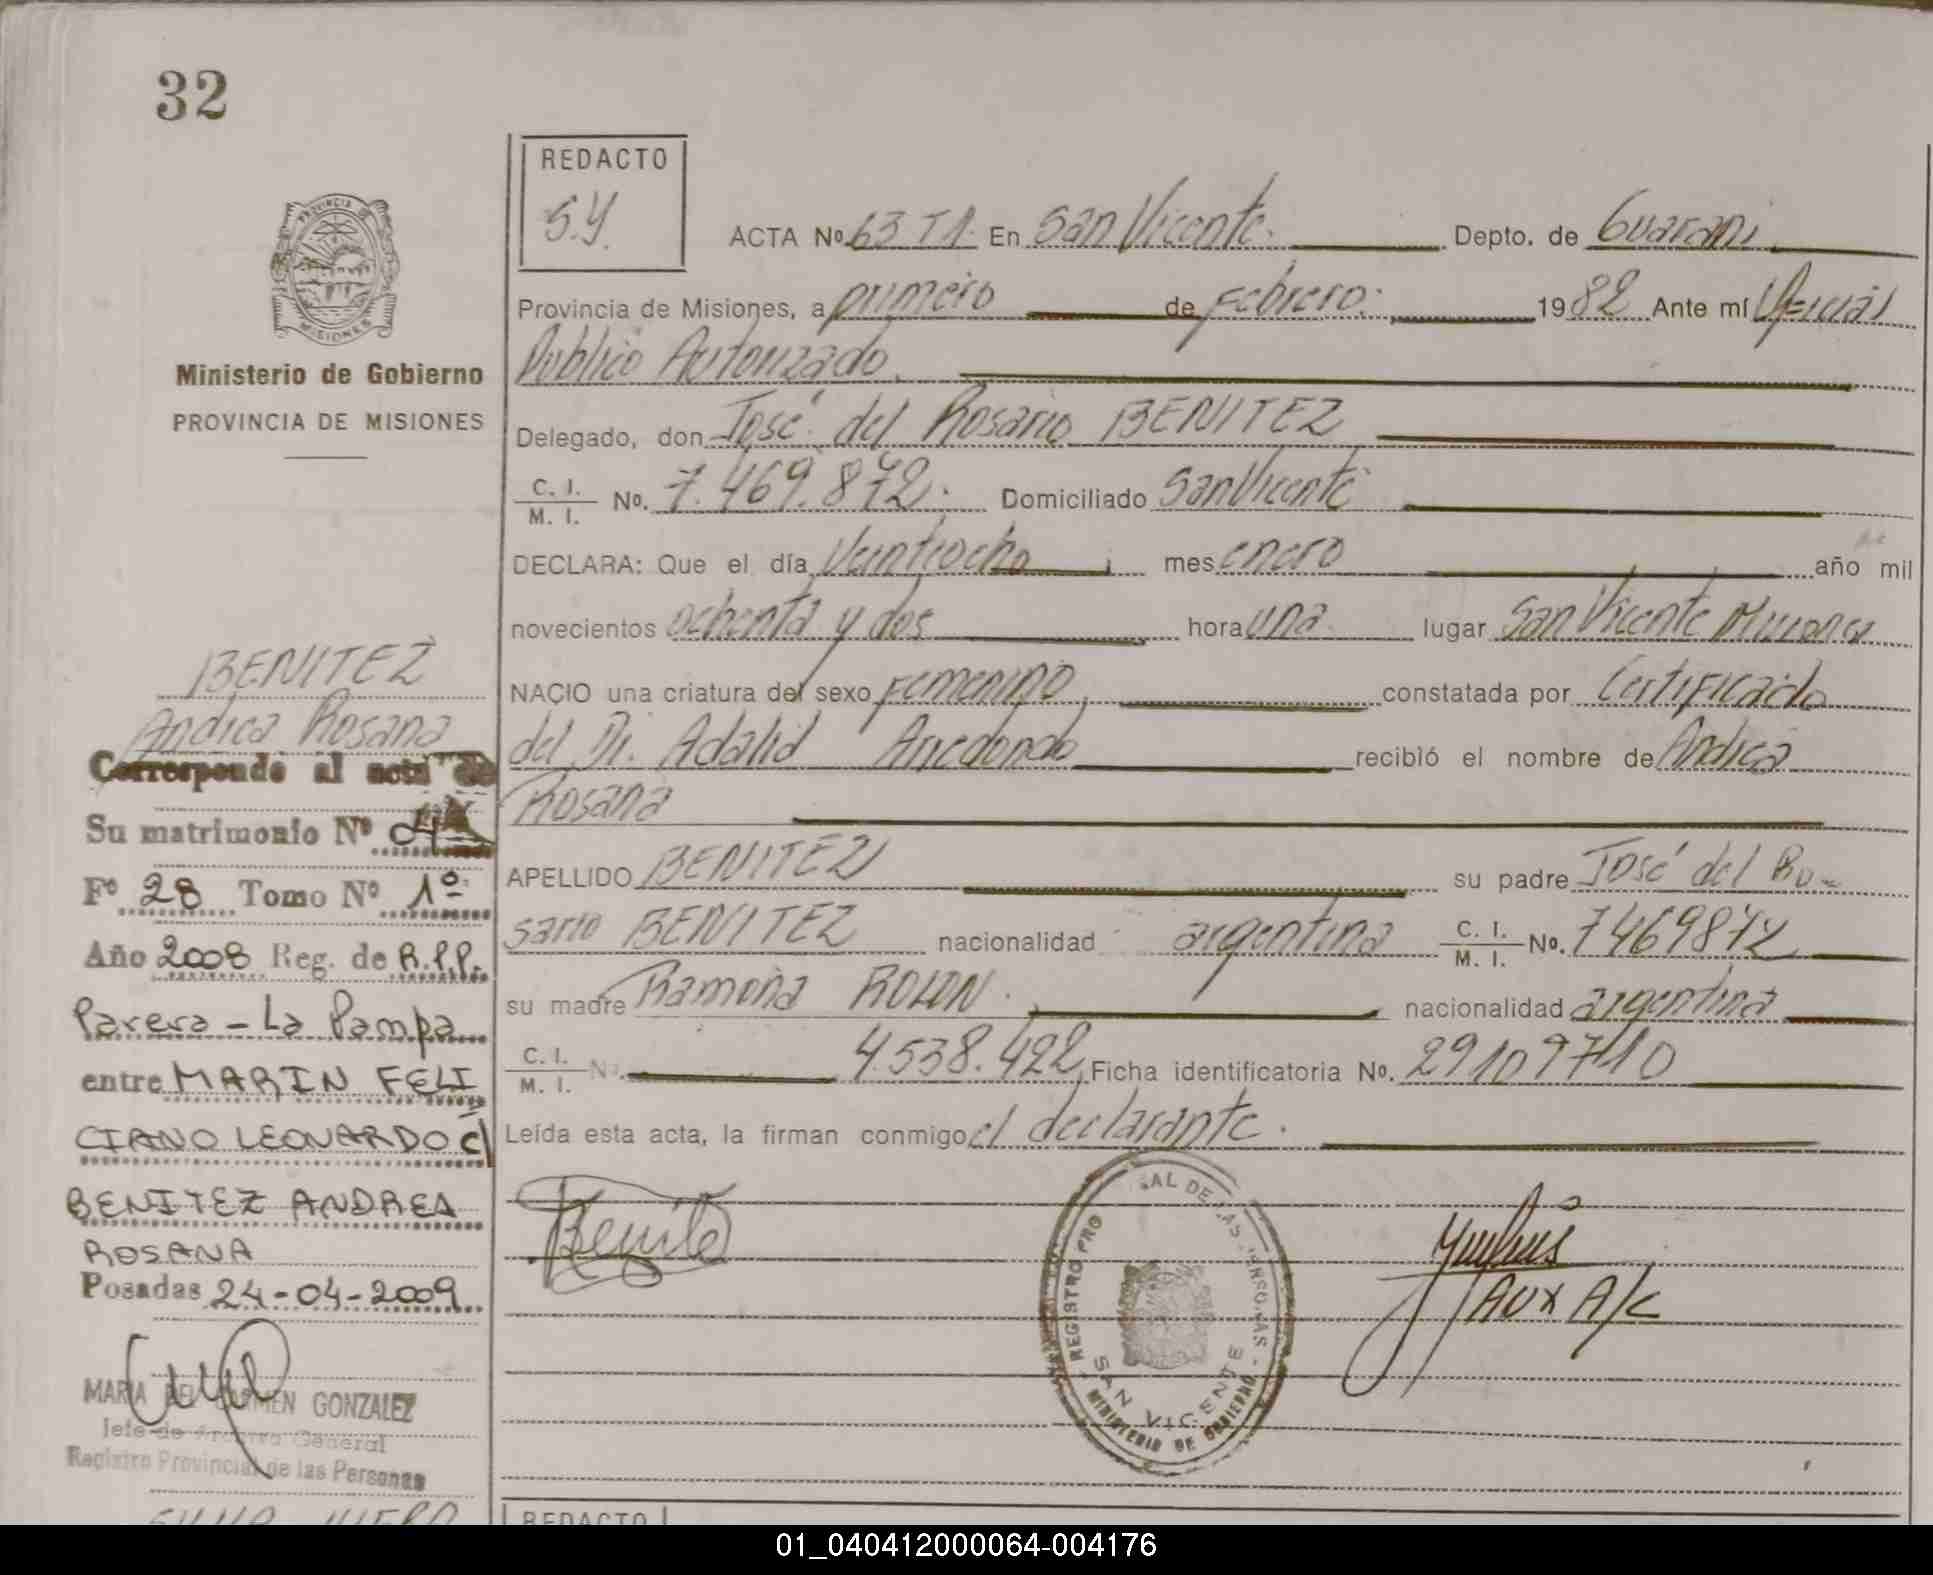 32
PROVINCIA DE
MISIONES
Ministerio de Gobierno
PROVINCIA DE MISIONES
REDACTO
S.Y.
ACTA No 63 T1. En San Vicente. Depto. de Guarani
Provincia de Misiones, a primero de Febrero. 1982 Ante mí Oficial
Publico Autorizado
Delegado, don José del Rosario BENITEZ
C. I. / M. I. No. 7.469.872. Domiciliado San Vicente
DECLARA: Que el día Veintiocho mes enero año mil
novecientos ochenta y dos hora una lugar San Vicente Misiones
NACIO una criatura del sexo Femenino constatada por Certificado
del Dr. Adalid Arredondo recibió el nombre de Andrea
Rosana
APELLIDO BENITEZ su padre José del Ro-
sario BENITEZ nacionalidad argentina C. I. / M. I. No. 7469872
su madre Ramona ROLON. nacionalidad argentina
C. I. / M. I. No. 4.538.422 Ficha identificatoria No. 29109710
Leída esta acta, la firman conmigo el declarante.
Benite
AUX A/C
REGISTRO PRO AL DE LAS
SAN VICENTE
MINISTERIO DE GOBIERNO
BENITEZ
Andrea Rosana
Corresponde al acta de
Su matrimonio Nº 04
Fº 28 Tomo Nº 1º
Año 2008 Reg. de R.P.P.
Parera - La Pampa
entre MARIN FELI
CIANO LEONARDO c/
BENITEZ ANDREA
ROSANA
Posadas 24-04-2009
MARIA DEL CARMEN GONZALEZ
Jefe de Archivo General
Registro Provincial de las Personas
REDACTO
01_040412000064-004176